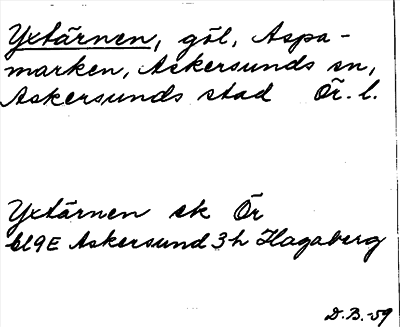 Yxtärnen, göl, Aspa-
marken, Askersunds sn,
Askersunds stad Ör. l.
Yxtärnen ek Ör
bl 9E Askersund 3h Hagaberg
D.B.-59